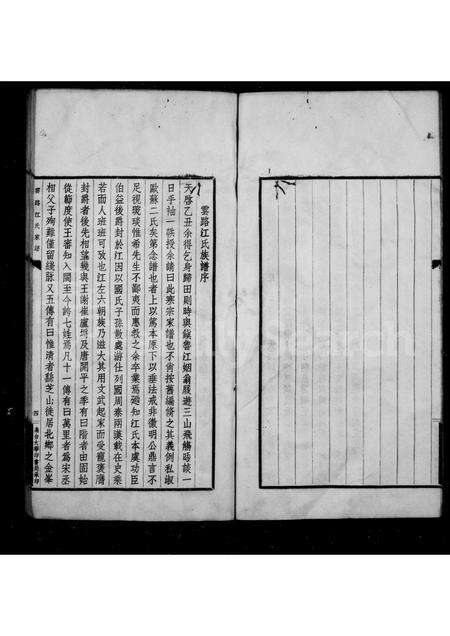 雲路江氏族譜序
天啓乙丑余得乞身歸田則時與鎮魯江姻翁屐遊三山飛觴晤談一
日手袖一帙授余請曰此班宗家譜也不肖按舊編脩之其義例私淑
歐蘇二氏矣第念譜也者上以篤本原下以垂法戒非徵明公鼎言不
足視琬琰惟希先生不鄙夷而惠教之余卒業焉迺知江氏本虞功臣
伯益後爵封於江因以國氏子孫散處游仕列國周秦兩漢載在史乘
若而人班班可攷也江左六朝族乃滋大其用文武起家而受寵褒膺
封爵者後先相望幾與王謝崔盧埒及唐開平之季有曰階者由固始
從節度使王審知入閩至今詝七姓焉凡十一傳有曰萬里者為宋丞
相父子殉難僅留綫脉又五傳有曰惟清者繇芝山徙居北鄉之金峯
雲路江氏家譜
四